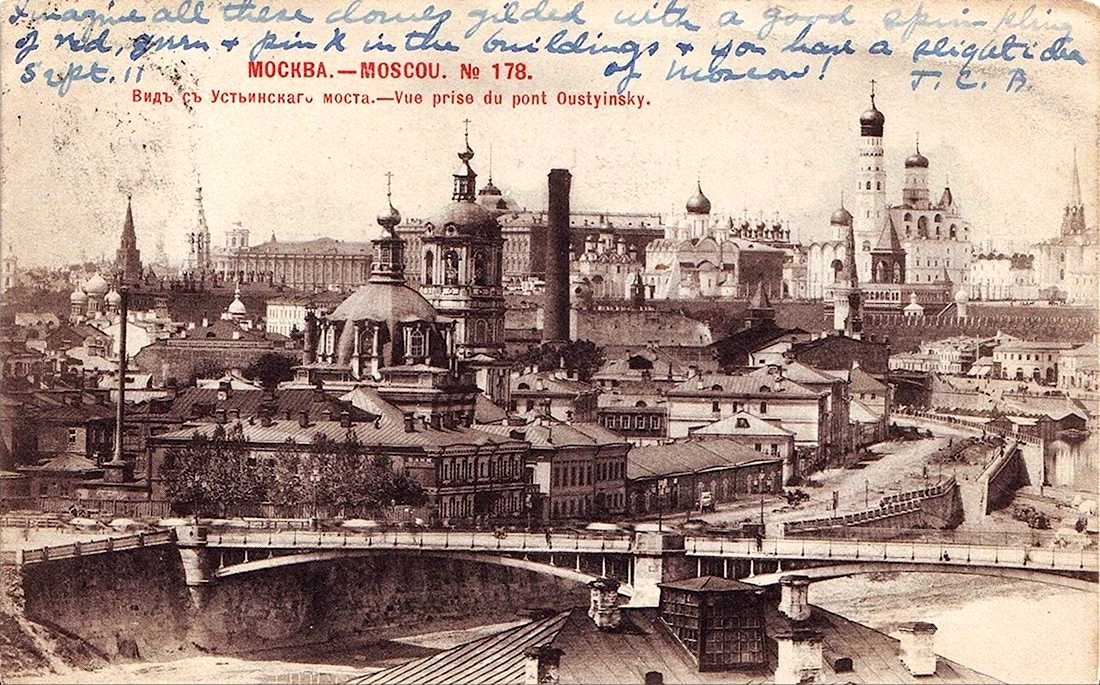 Imagine all these domes gilded with a good sprinkling
of red, green + pink in the buildings + you have a slight idea
Sept. 11 of Moscow! T. C. B.
МОСКВА.—MOSCOU. № 178.
Видъ съ Устьинскаго моста.—Vue prise du pont Oustyinsky.